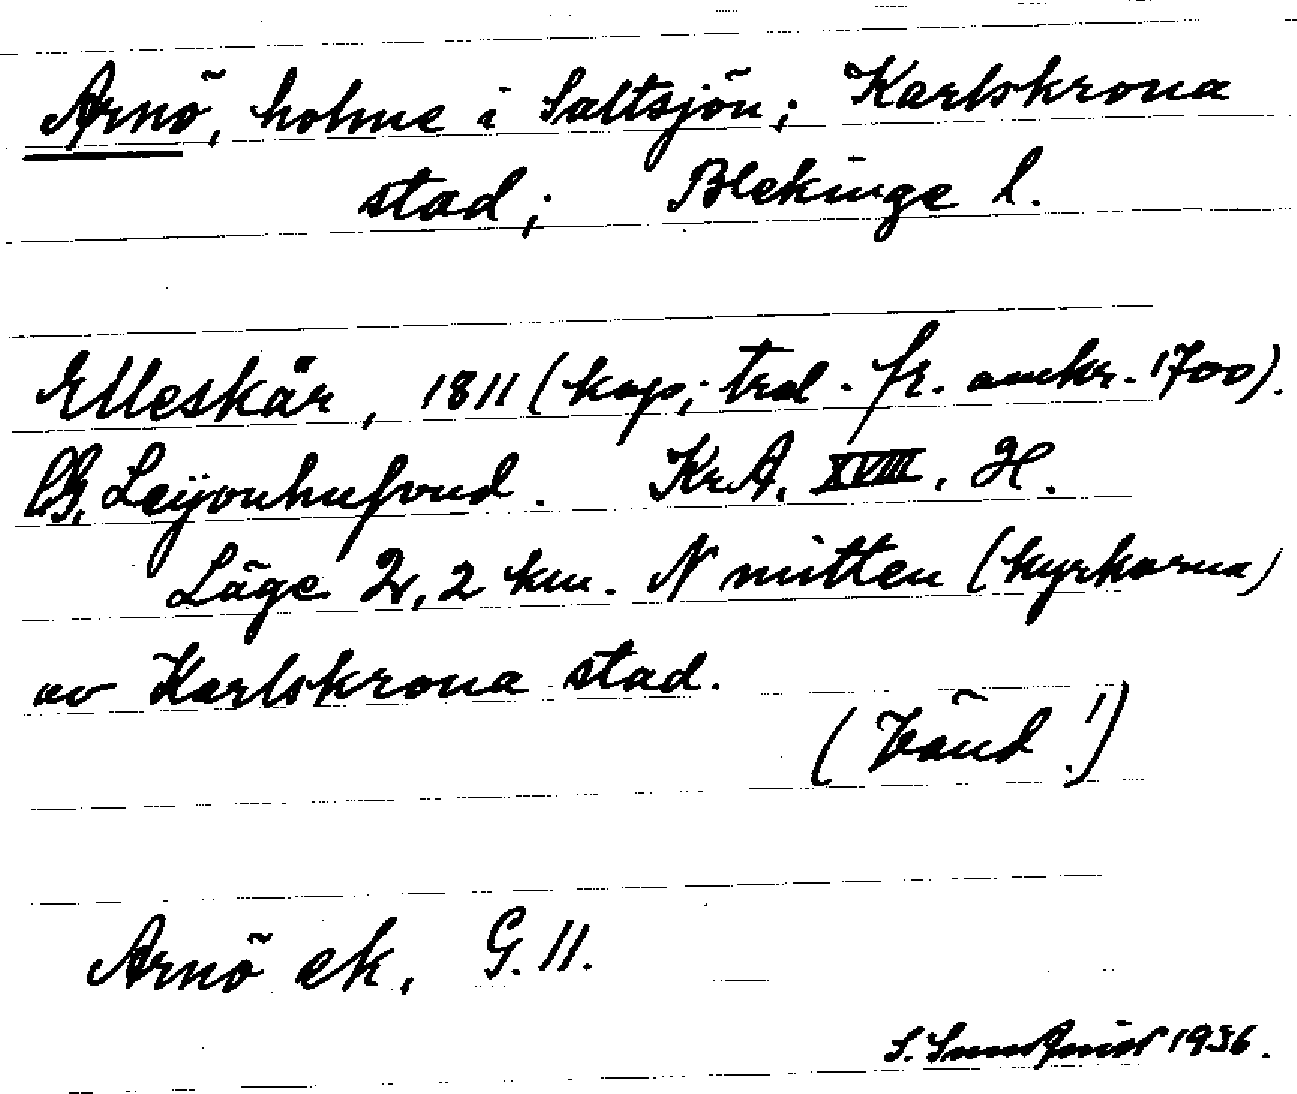 Arnö, holme i Saltsjön; Karlskrona
stad; Blekinge l.
Elleskär, 1811 (kop; trol. fr. omkr. 1700).
CG. Leijonhufvud. KrA. XVIII. H.
Läge 2,2 km. N mitten (kyrkorna)
av Karlskrona stad.
(Vänd!)
Arnö ek. G. 11.
S. 1936.